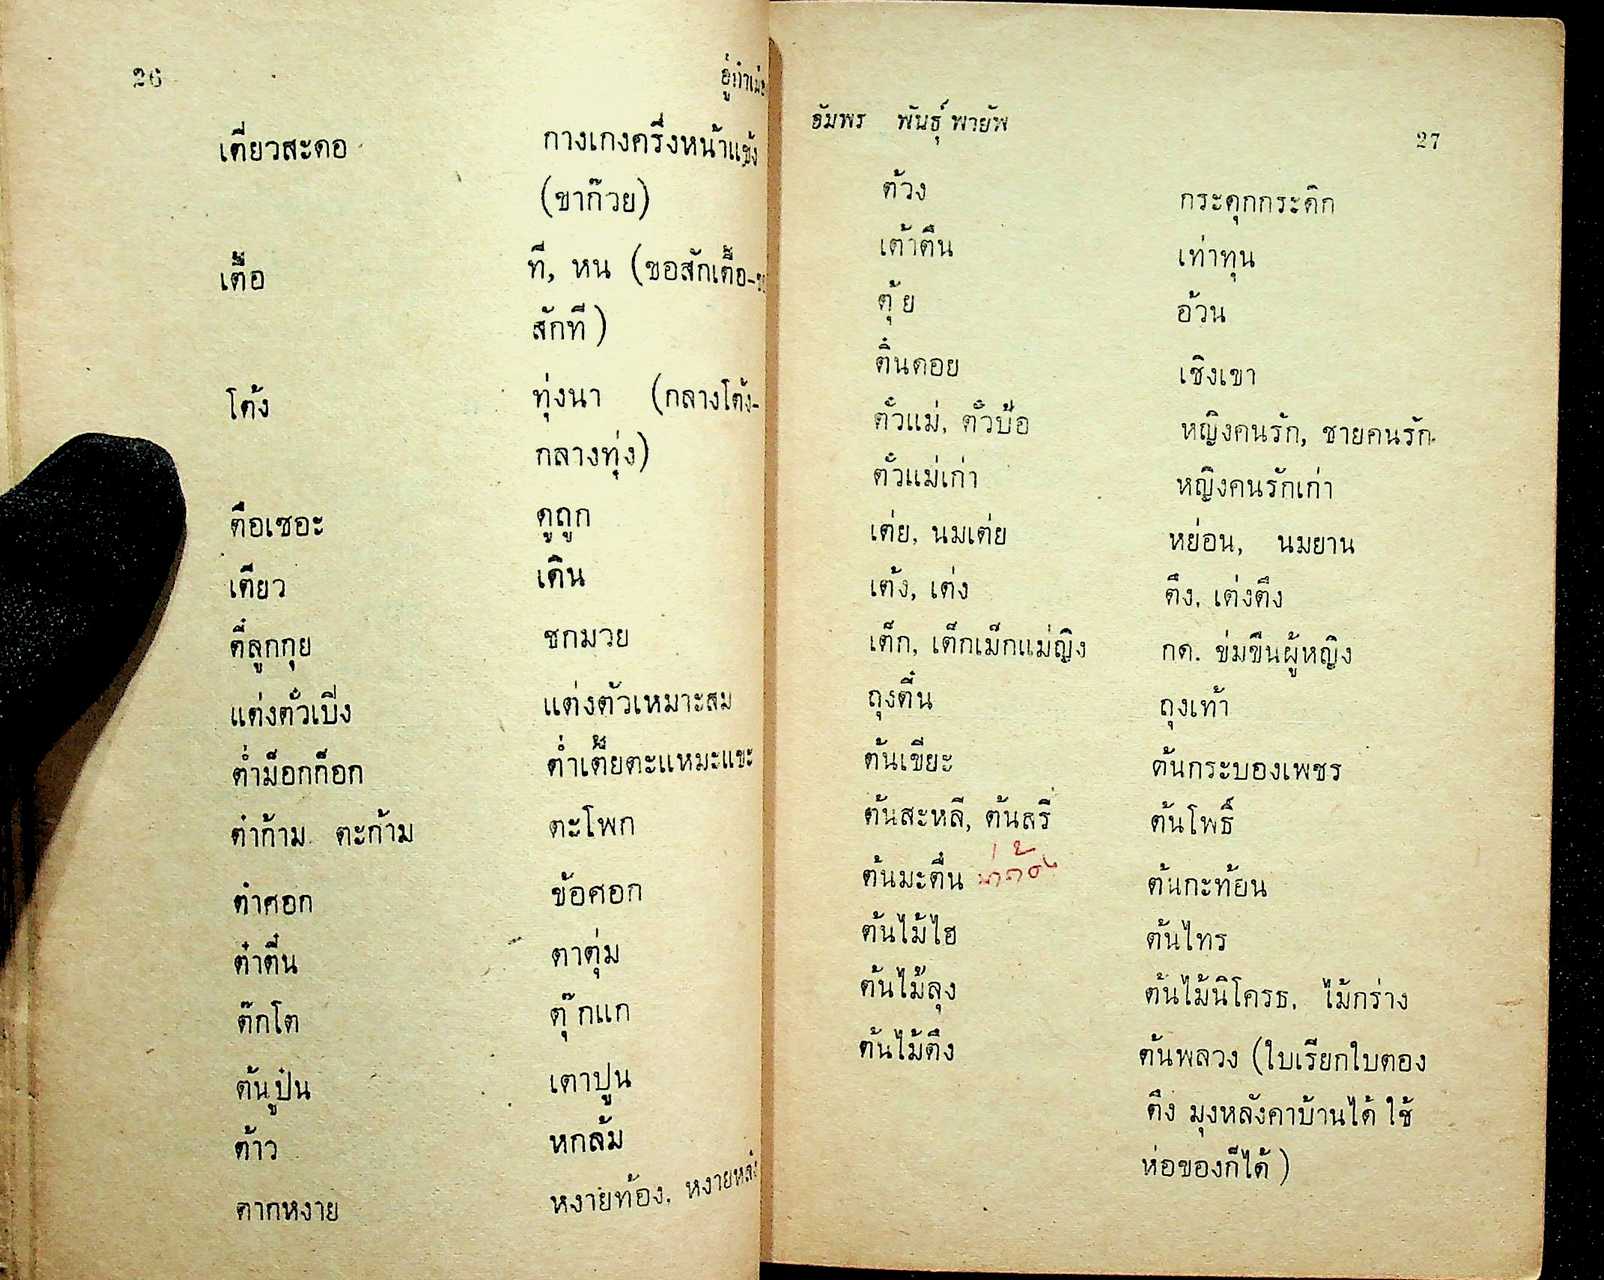 26
เตี่ยวสะดอ กางเกงครึ่งหน้าแข้ง
(ขาก๊วย)
เตื้อ ที, หน (ขอสักเตื้อ-
สักที)
โต้ง ทุ่งนา (กลางโต้ง-
กลางทุ่ง)
ตือเซอะ ดูถูก
เตียว เดิน
ตี๋ลูกกุย ชกมวย
แต่งตั๋วเปิ่ง แต่งตัวเหมาะสม
ต่ำม็อกก็อก ต่ำเตี้ยตะแหมะแขะ
ต๋าก้าม ตะก้าม ตะโพก
ต๋าศอก ข้อศอก
ต๋าตี๋น ตาตุ่ม
ต๊กโต ตุ๊กแก
ต้นปู๋น เตาปูน
ต้าว หกล้ม
ตากหงาย หงายท้อง, หงายหลัง
อัมพร พันธุ์ พายัพ
27
ต้วง กระดุกกระดิก
เต้าตึน เท่าทุน
ตุ้ย อ้วน
ตี๋นดอย เชิงเขา
ตั๋วแม่, ตั๋วป้อ หญิงคนรัก, ชายคนรัก
ตั๋วแม่เก่า หญิงคนรักเก่า
เต่ย, นมเต่ย หย่อน, นมยาน
เต้ง, เต่ง ตึง, เต่งตึง
เต็ก, เต็กเม็กแม่ญิง กด. ข่มขืนผู้หญิง
ถุงตี๋น ถุงเท้า
ต้นเขียะ ต้นกระบองเพชร
ต้นสะหลี, ต้นสรี ต้นโพธิ์
ต้นมะตื๋น ต้นกะท้อน
ต้นไม้ไฮ ต้นไทร
ต้นไม้ลุง ต้นไม้นิโครธ, ไม้กร่าง
ต้นไม้ตึง ต้นพลวง (ใบเรียกใบตอง
ตึง มุงหลังคาบ้านได้ ใช้
ห่อของก็ได้)